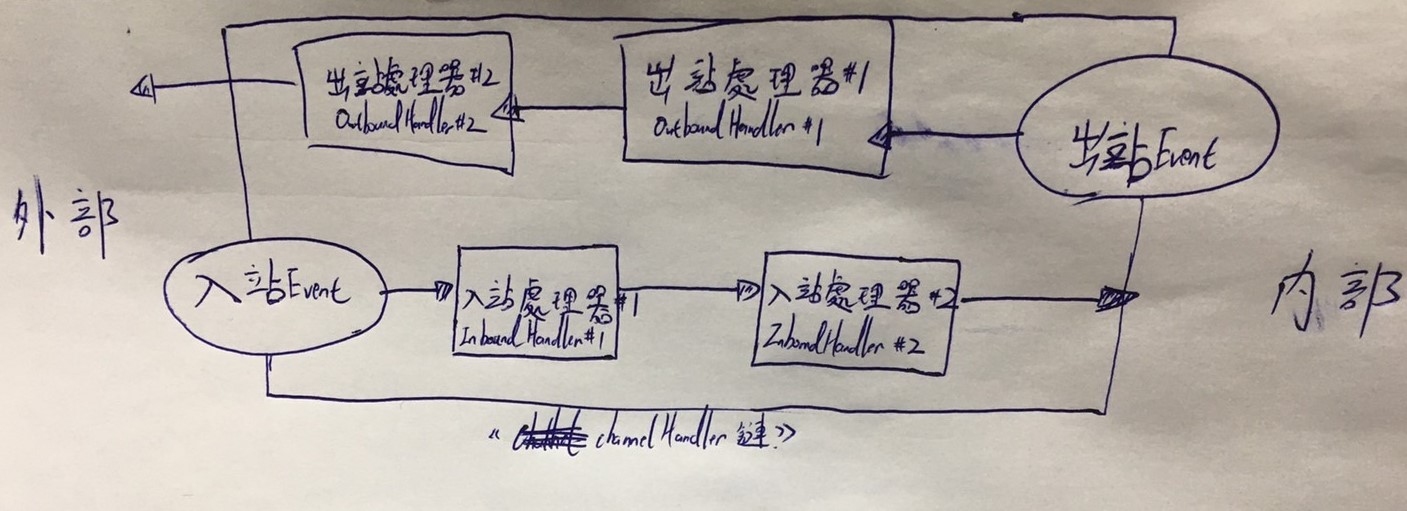 出站處理器#2
OutboundHandler#2
出站處理器#1
OutboundHandler #1
出站Event
外部
入站Event
入站處理器#1
InboundHandler#1
入站處理器#2
InboundHandler #2
内部
“ channelHandler 鏈”